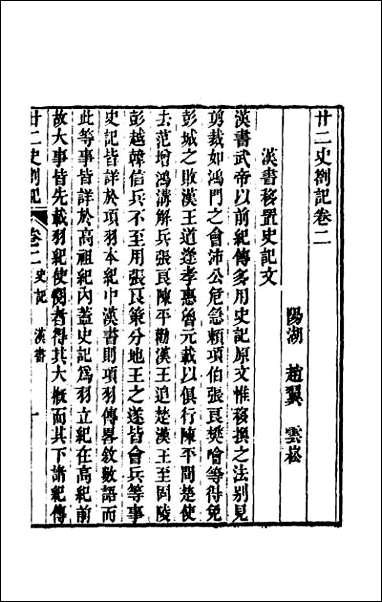 廿二史劄記卷二
陽湖 趙翼 雲崧
漢書移置史記文
漢書武帝以前紀傳多用史記原文惟移換之法別見
剪裁如鴻門之會沛公危急賴項伯張良樊噲等得免
彭城之敗漢王道逢孝惠魯元載以俱行陳平間楚使
去范增鴻溝解兵張良陳平勸漢王追楚漢王至固陵
彭越韓信兵不至用張良策分地王之遂皆會兵等事
史記皆詳於項羽本紀中漢書則項羽傳畧敘數語而
此等事皆詳於高祖紀內蓋史記為羽立紀在高紀前
故大事皆先載羽紀使閱者得其大概而其下諸紀傳
廿二史劄記 卷二 史記 漢書 一